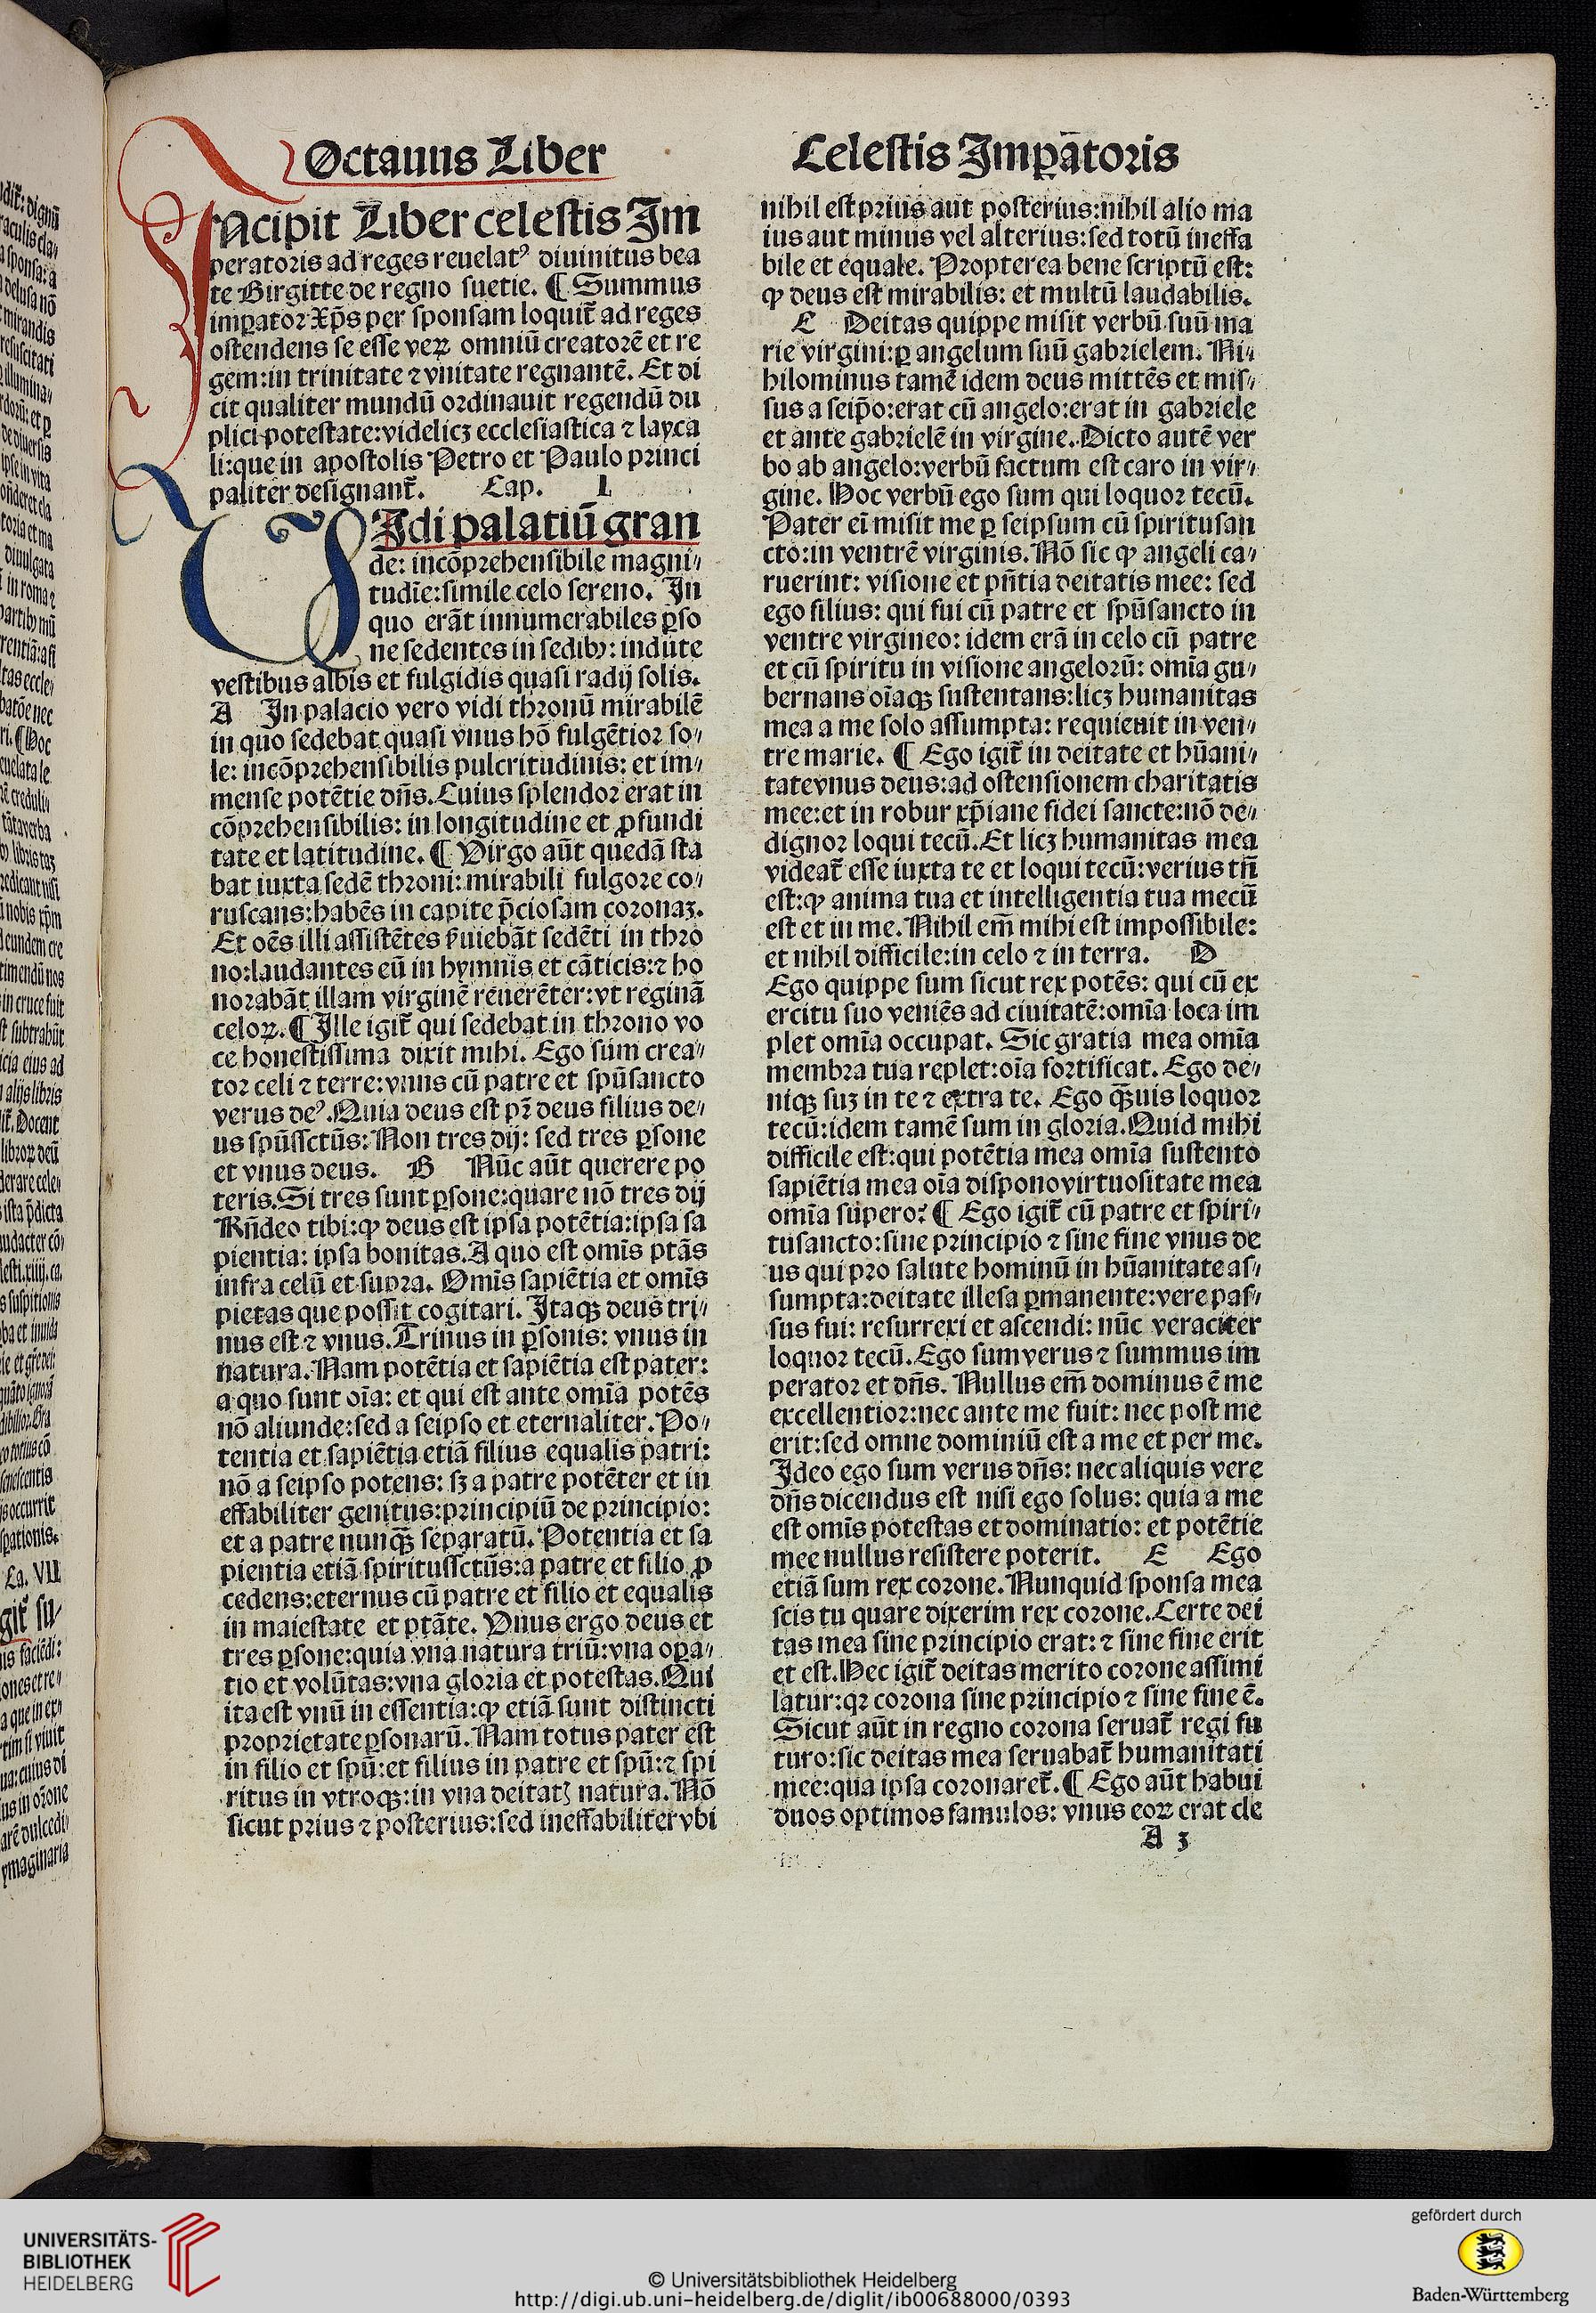 Octauus Liber
Celestis Imꝑatoris
INcipit Liber celestis Im
peratoris ad reges reuelatꝰ diuinitus bea
te Birgitte de regno suetie. ¶ Summus
imꝑator Xp̄s per sponsam loquit̄ ad reges
ostendens se esse veꝝ omniū creatorē et re
gem: in trinitate ⁊ vnitate regnantē. Et di
cit qualiter mundū ordinauit regendū du
plici potestate: videlicꝫ ecclesiastica ⁊ layca
li: que in apostolis Petro et Paulo princi
paliter designant̄. Cap. I
VIdi palatiū gran
de: incōprehensibile magni⸗
tudīe: simile celo sereno. In
quo erāt innumerabiles ꝑso
ne sedentes in sedibꝰ: indute
vestibus albis et fulgidis quasi radij solis.
A In palacio vero vidi thronū mirabilē
in quo sedebat quasi vnus hō fulgētior so⸗
le: incōprehensibilis pulcritudinis: et im⸗
mense potētie dn̄s. Cuius splendor erat in
cōprehensibilis: in longitudine et ꝓfundi
tate et latitudine. ¶ Virgo aūt quedā sta
bat iuxta sedē throni: mirabili fulgore co⸗
ruscans: habēs in capite p̄ciosam coronaꝫ.
Et oēs illi assistētes s̓uiebāt sedēti in thro
no: laudantes eū in hymnis et cāticis: ⁊ ho
norabāt illam virginē reuerēter: vt reginā
celoꝝ. ¶ Ille igit̄ qui sedebat in throno vo
ce honestissima dixit mihi. Ego sum crea⸗
tor celi ⁊ terre: vnus cū patre et spūsancto
verus deꝰ. Quia deus est pr̄ deus filius de⸗
us spūssctūs: Non tres dij: sed tres ꝑsone
et vnus deus. B Nūc aūt querere po
teris. Si tres sunt ꝑsone: quare nō tres dij
Rn̄deo tibi: ꝙ deus est ipsa potētia: ipsa sa
pientia: ipsa bonitas. A quo est omīs ptās
infra celū et supra. Omīs sapiētia et omīs
pietas que possit cogitari. Itaqꝫ deus tri⸗
nus est ⁊ vnus. Trinus in ꝑsonis: vnus in
natura. Nam potētia et sapiētia est pater:
a quo sunt oīa: et qui est ante omīa potēs
nō aliunde: sed a seipso et eternaliter. Po⸗
tentia et sapiētia etiā filius equalis patri:
nō a seipso potens: sꝫ a patre potēter et in
effabiliter genitus: principiū de principio:
et a patre nunqꝫ separatū. Potentia et sa
pientia etiā spiritussctūs: a patre et filio ꝓ
cedens: eternus cū patre et filio et equalis
in maiestate et ptāte. Vnus ergo deus et
tres ꝑsone: quia vna natura triū: vna oꝑa⸗
tio et volūtas: vna gloria et potestas. Qui
ita est vnū in essentia: ꝙ etiā sunt distincti
proprietate ꝑsonarū. Nam totus pater est
in filio et spū: et filius in patre et spū: ⁊ spi
ritus in vtroqꝫ: in vna deitatꝭ natura. Nō
sicut prius ⁊ posterius: sed ineffabiliter vbi
nihil est prius aut posterius: nihil alio ma
ius aut minus vel alterius: sed totū ineffa
bile et equale. Propterea bene scriptū est:
ꝙ deus est mirabilis: et multū laudabilis.
C Deitas quippe misit verbū suū ma
rie virgini: ꝑ angelum suū gabrielem. Ni⸗
hilominus tamē idem deus mittēs et mis⸗
sus a seip̄o: erat cū angelo: erat in gabriele
et ante gabrielē in virgine. Dicto autē ver
bo ab angelo: verbū factum est caro in vir⸗
gine. Hoc verbū ego sum qui loquor tecū.
Pater eī misit me ꝑ seipsum cū spiritusan
cto: in ventrē virginis. Nō sic ꝙ angeli ca⸗
ruerint: visione et pn̄tia deitatis mee: sed
ego filius: qui fui cū patre et spūsancto in
ventre virgineo: idem erā in celo cū patre
et cū spiritu in visione angelorū: omīa gu⸗
bernans oīaqꝫ sustentans: licꝫ humanitas
mea a me solo assumpta: requieuit in ven⸗
tre marie. ¶ Ego igit̄ in deitate et hūani⸗
tate vnus deus: ad ostensionem charitatis
mee: et in robur xp̄iane fidei sancte: nō de⸗
dignor loqui tecū. Et licꝫ humanitas mea
videat̄ esse iuxta te et loqui tecū: verius tn̄
est: ꝙ anima tua et intelligentia tua mecū
est et in me. Nihil em̄ mihi est impossibile:
et nihil difficile: in celo ⁊ in terra. D
Ego quippe sum sicut rex potēs: qui cū ex
ercitu suo veniēs ad ciuitatē: omīa loca im
plet omīa occupat. Sic gratia mea omīa
membra tua replet: oīa fortificat. Ego de⸗
niqꝫ suꝫ in te ⁊ extra te. Ego qꝫuis loquor
tecū: idem tamē sum in gloria. Quid mihi
difficile est: qui potētia mea omīa sustento
sapiētia mea oīa dispono virtuositate mea
omīa supero? ¶ Ego igit̄ cū patre et spiri⸗
tusancto: sine principio ⁊ sine fine vnus de
us qui pro salute hominū in hūanitate as⸗
sumpta: deitate illesa ꝑmanente: vere pas⸗
sus fui: resurrexi et ascendi: nūc veraciter
loquor tecū. Ego sum verus ⁊ summus im
perator et dn̄s. Nullus em̄ dominus ē me
excellentior: nec ante me fuit: nec post me
erit: sed omne dominiū est a me et per me.
Ideo ego sum verus dn̄s: nec aliquis vere
dn̄s dicendus est nisi ego solus: quia a me
est omīs potestas et dominatio: et potētie
mee nullus resistere poterit. E Ego
etiā sum rex corone. Nunquid sponsa mea
scis tu quare dixerim rex corone. Certe dei
tas mea sine principio erat: ⁊ sine fine erit
et est. Hec igit̄ deitas merito corone assimi
latur: qꝛ corona sine principio ⁊ sine fine ē.
Sicut aūt in regno corona seruat̄ regi fu
turo: sic deitas mea seruabat̄ humanitati
mee: qua ipsa coronaret̄. ¶ Ego aūt habui
duos optimos famulos: vnus eoꝝ erat cle
A 3
UNIVERSITÄTS-
BIBLIOTHEK
HEIDELBERG
© Universitätsbibliothek Heidelberg
http://digi.ub.uni-heidelberg.de/diglit/ib00688000/0393
gefördert durch
Baden-Württemberg